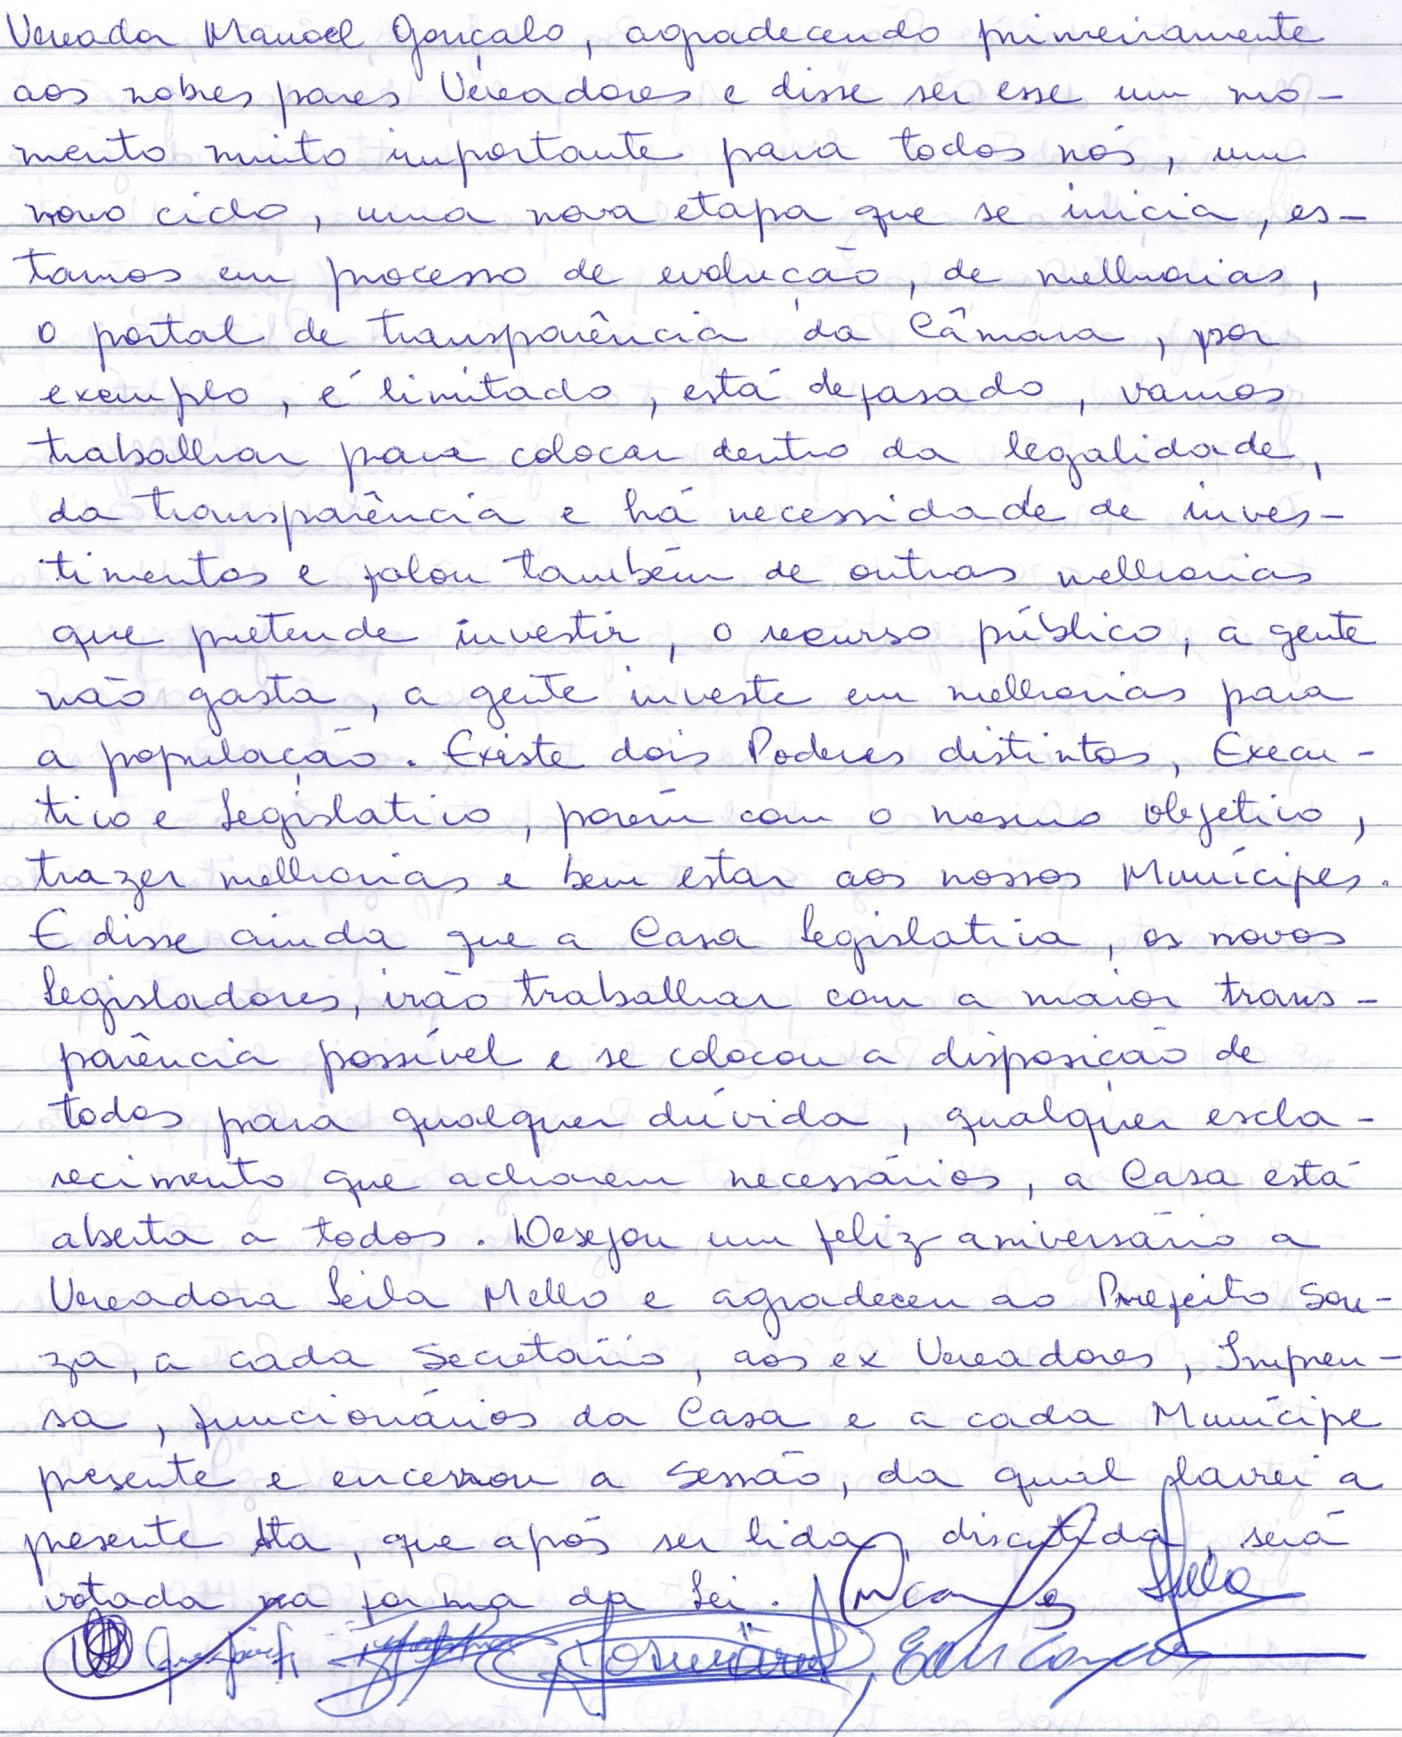 Vereador Manoel Gonçalo, agradecendo primeiramente
aos nobres pares Vereadores e disse ser esse um mo-
mento muito importante para todos nós, um
novo ciclo, uma nova etapa que se inicia, es-
tamos em processo de evolução, de melhorias,
o portal de transparência da Câmara, por
exemplo, é limitado, está defasado, vamos
trabalhar para colocar dentro da legalidade,
da transparência e há necessidade de inves-
timentos e falou também de outras melhorias
que pretende investir, o recurso público, a gente
não gasta, a gente investe em melhorias para
a população. Existe dois Poderes distintos, Execu-
tivo e Legislativo, porém com o mesmo objetivo,
trazer melhorias e bem estar aos nossos Munícipes.
E disse ainda que a Casa Legislativa, os novos
Legisladores, irão trabalhar com a maior trans-
parência possível e se colocou a disposição de
todos para qualquer dúvida, qualquer escla-
recimento que acharem necessários, a Casa está
aberta a todos. Desejou um feliz aniversário a
Vereadora Leila Mello e agradeceu ao Prefeito Sou-
za, a cada Secretário, aos ex Vereadores, Impren-
sa, funcionários da Casa e a cada Munícipe
presente e encerrou a Sessão, da qual lavrei a
presente Ata, que após ser lida, discutida, será
votada na forma da Lei.